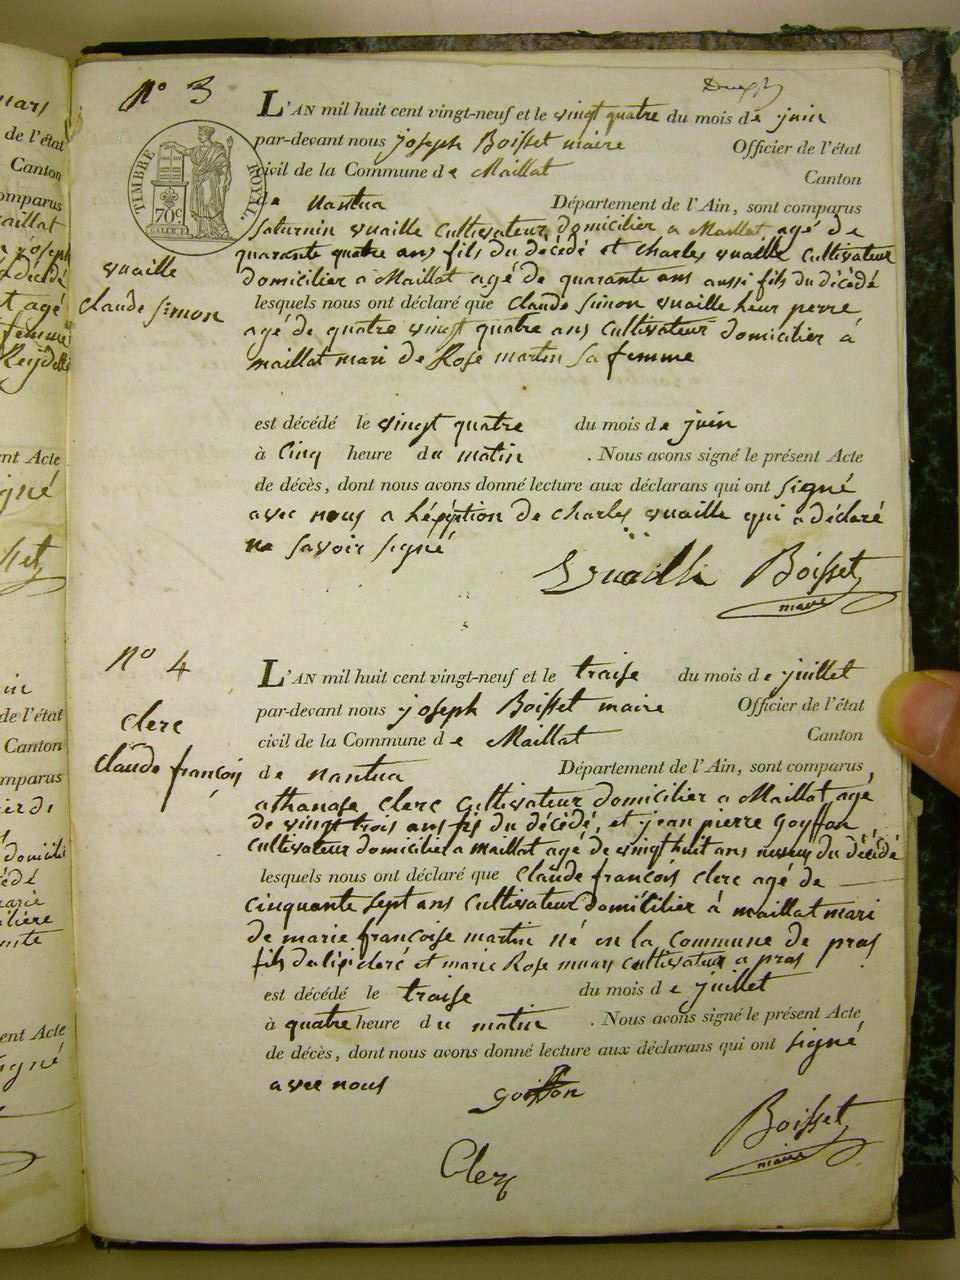 N° 3
L'AN mil huit cent vingt-neuf et le vingt quatre du mois de juin
par-devant nous joseph Boisset maire Officier de l'état
civil de la Commune de Maillat Canton
de nantua Département de l'Ain, sont comparus
TIMBRE ROYAL
70c
vuaille
claude simon
Saturnin vuaille Cultivateur domicilier a Maillat agé de
quarante quatre ans fils du décédé et charles vuaille Cultivateur
domicilier a Maillat agé de quarante ans aussi fils du décédé
lesquels nous ont déclaré que claude simon vuaille leur perre
agé de quatre vingt quatre ans Cultivateur domicilier à
maillat mari de Rose martin sa femme
est décédé le vingt quatre du mois de juin
à Cinq heure du matin . Nous avons signé le présent Acte
de décès, dont nous avons donné lecture aux déclarans qui ont signé
avec nous a de charles vuaille qui a déclaré
ne savoir signé
S vuaille Boisset
maire
N° 4
L'AN mil huit cent vingt-neuf et le traise du mois de juillet
par-devant nous joseph Boisset maire Officier de l'état
civil de la Commune de Maillat Canton
de nantua Département de l'Ain, sont comparus
Clerc
Claude françois
athanase Clerc Cultivateur domicilier a Maillat agé
de vingt trois ans fis du décédé, et jean pierre Goyffon
Cultivateur domicilier a maillat agé de vingt huit ans neveux du décédé
lesquels nous ont déclaré que Claude françois clerc agé de
cinquante sept ans Cultivateur domicilier à maillat mari
de marie françoise martin né en la Commune de pras
fils de clerc et marie Rose Cultivateur a pras
est décédé le traise du mois de juillet
à quatre heure du matin . Nous avons signé le présent Acte
de décès, dont nous avons donné lecture aux déclarans qui ont signé
avec nous
goiffon
Boisset
maire
Clerc